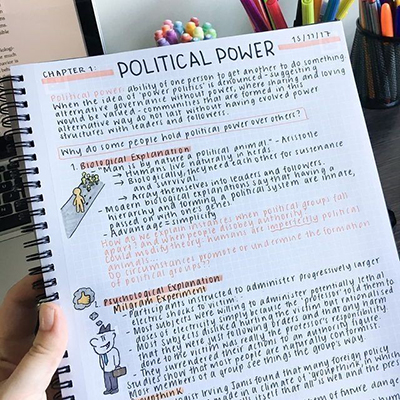 CHAPTER 1: POLITICAL POWER 15/11/17
Political power: ability of one person to get another to do something
When the idea of 'power politics' is denounced - suggesting
alternate governance without power, where sharing and loving
would be valued - communities that are formed in this
alternative way do not last without having evolved power
structures with leaders and followers.
Why do some people hold political power over others?
1 Biological Explanation
- "Man is by nature a political animal" - Aristotle
→ Humans live naturally in herds
→ Biologically, they need each other for sustenance
and survival
→ Array themselves into leaders and followers.
- Modern biological explanations say that having a
hierarchy and forming a political system are innate,
passed on with one's genes
- Advantage = simplicity
How do we explain instances when political groups fall
apart and when people disobey authority?
Could modify theory: humans are imperfectly political
animals
Do circumstances promote or undermine the formation
of political groups?
Psychological Explanation
Milgram Experiment
- Participants instructed to administer progressively larger
electric shocks to victim
- Most subjects were willing to administer potentially lethal
doses of electricity simply because the "professor" told them to
- Most subjects disliked hurting the victim but rationalised
that they were just following orders and that any harm
done to the victim was really the professor's responsibility
- They surrendered their actions to an authority figure.
Studies show that most people are naturally conformist
Most members of a group see things the group's way.
Irving Janis found that many foreign policy
made in a climate of "groupthink" in which
itself that all is well and the